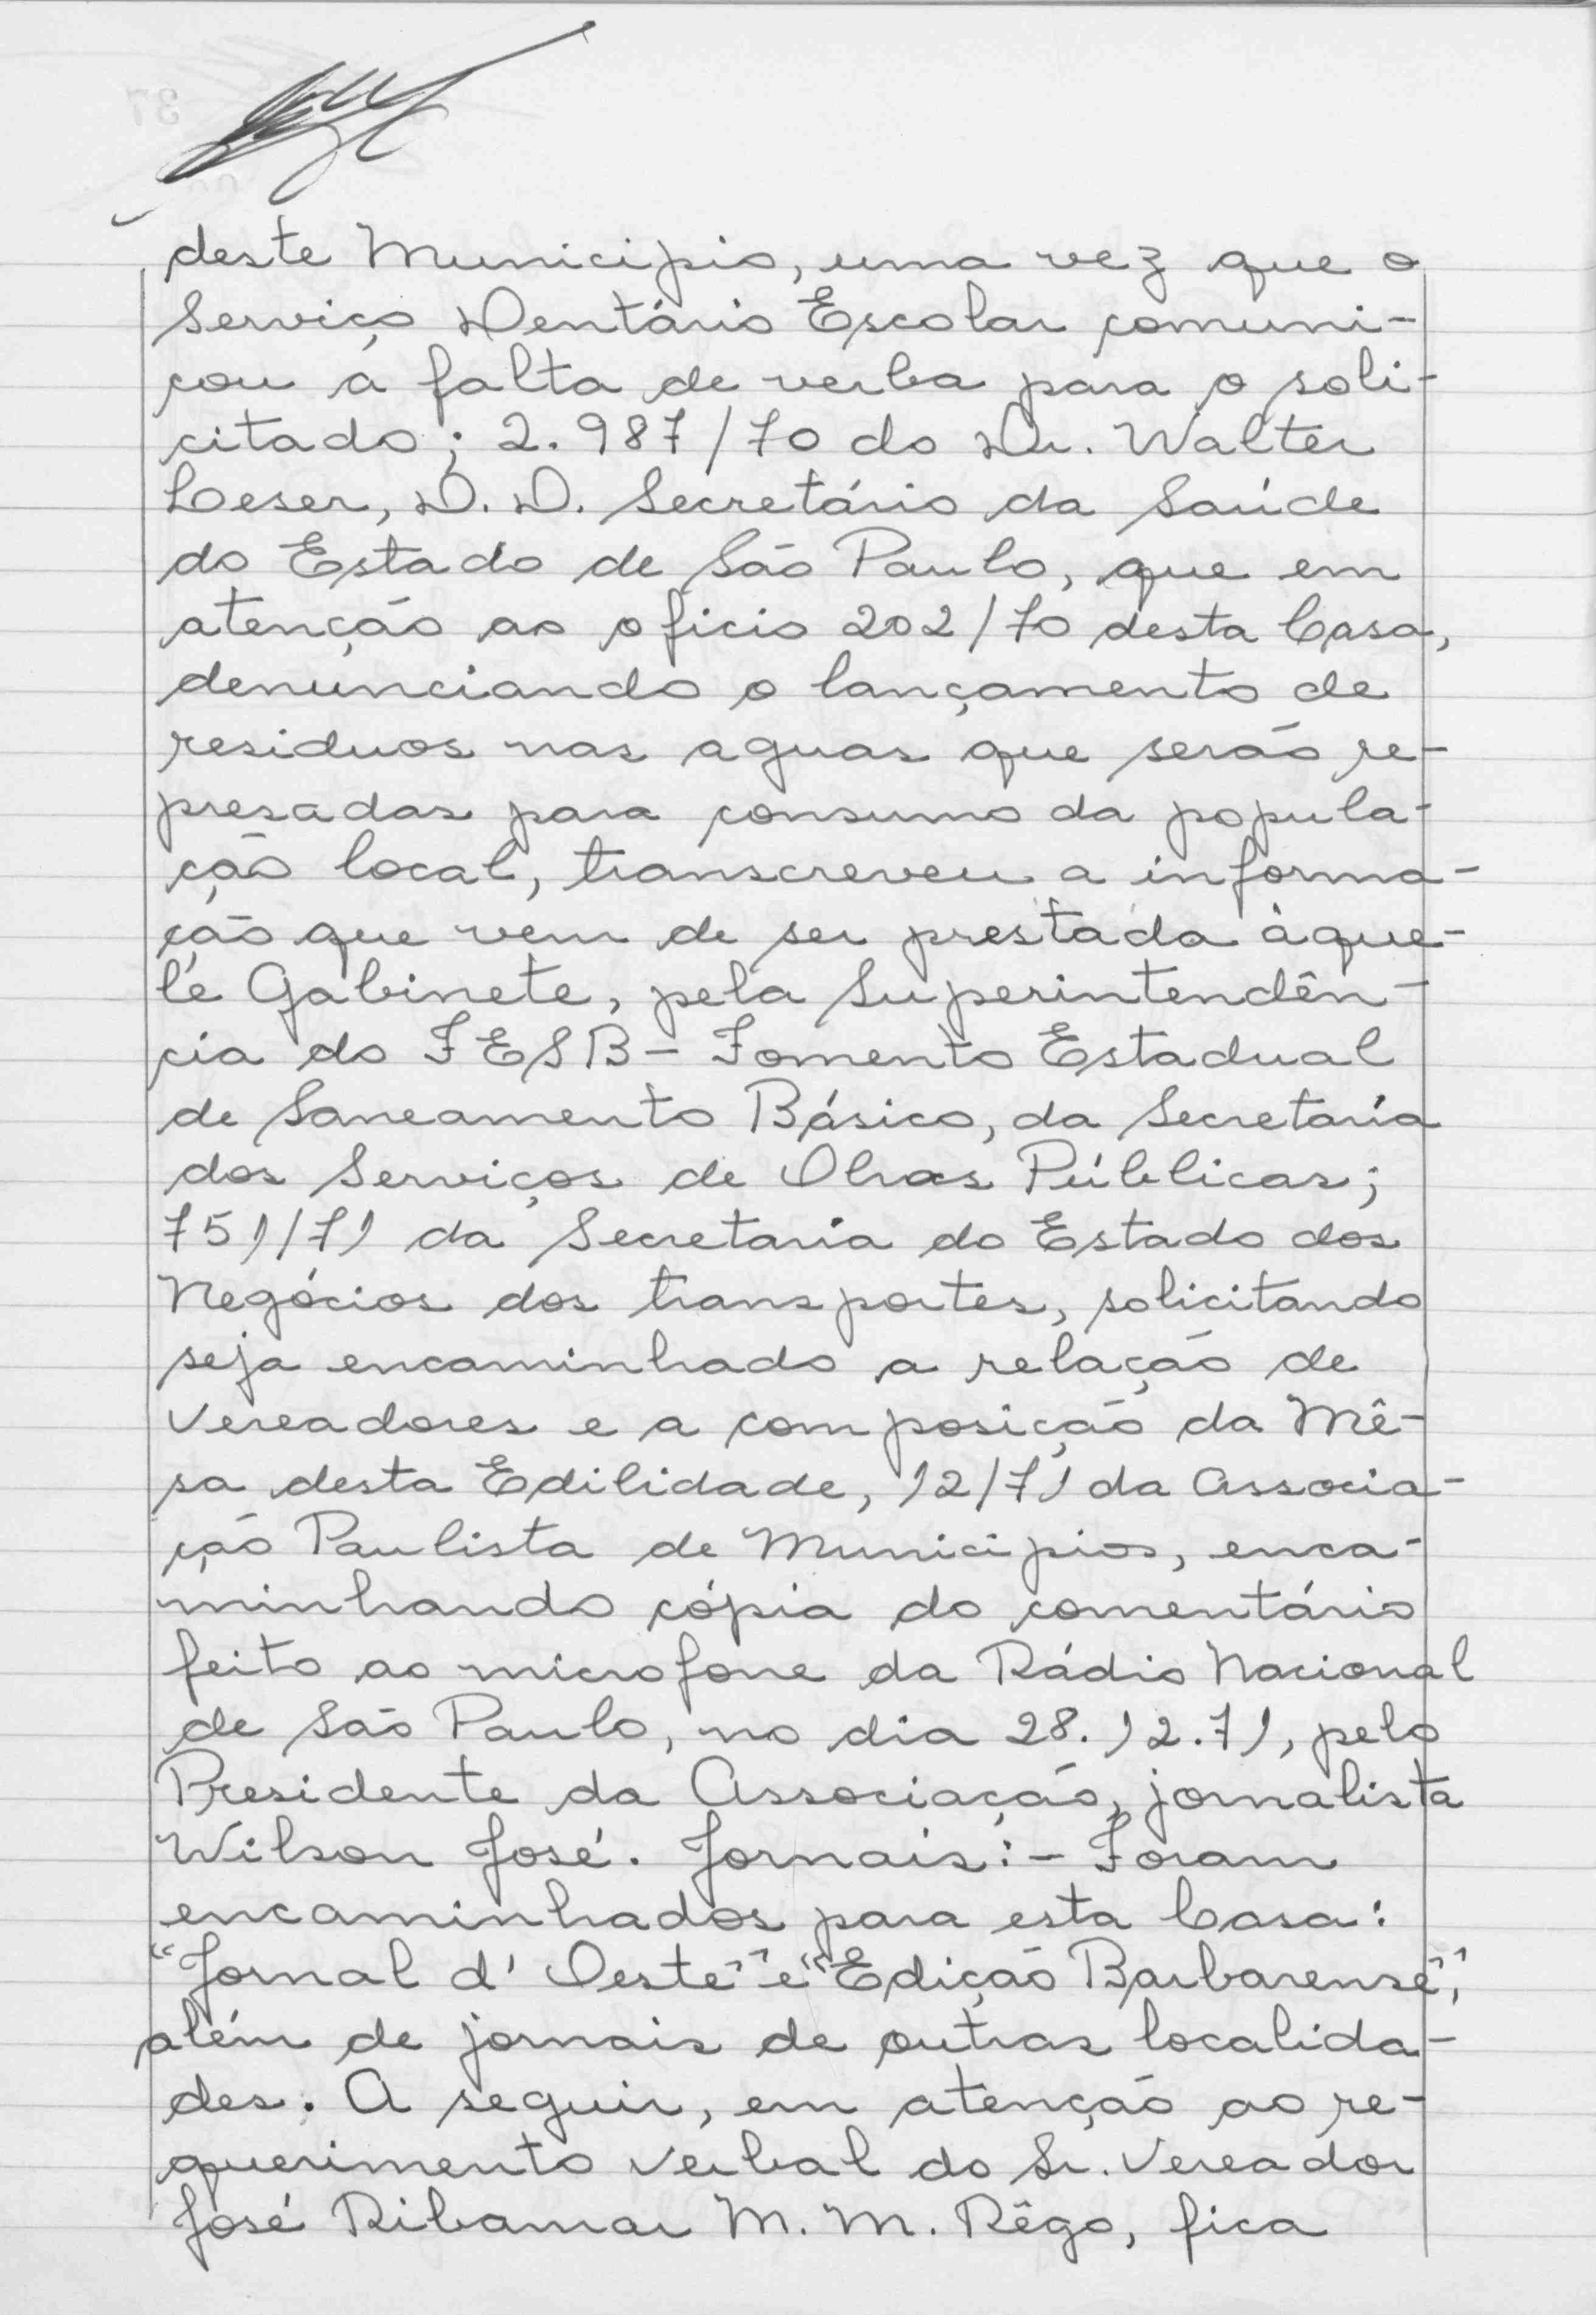 deste Municipio, uma vez que o
Serviço Dentário Escolar comuni-
cou a falta de verba para o soli-
citado; 2.987/70 do Dr. Walter
Leser, D.D. Secretário da Saúde
do Estado de São Paulo, que em
atenção ao oficio 202/70 desta Casa,
denunciando o lançamento de
residuos nas aguas que serão re-
presadas para consumo da popula-
ção local, transcreveu a informa-
ção que vem de ser prestada àque-
le Gabinete, pela Superintendên-
cia do FESB - Fomento Estadual
de Saneamento Básico, da Secretaria
dos Serviços de Obras Públicas;
751/71 da Secretaria do Estado dos
Negócios dos transportes, solicitando
seja encaminhado a relação de
Vereadores e a composição da Mê-
sa desta Edilidade, 12/71 da Associa-
ção Paulista de Municipios, enca-
minhando cópia do comentário
feito ao microfone da Rádio Nacional
de São Paulo, no dia 28.12.71, pelo
Presidente da Associação, jornalista
Wilson José. Jornais:- Foram
encaminhados para esta Casa:
"Jornal d' Oeste" e "Edição Barbarense",
além de jornais de outras localida-
des. A seguir, em atenção ao re-
querimento verbal do Sr. Vereador
José Ribamar M. M. Rêgo, fica